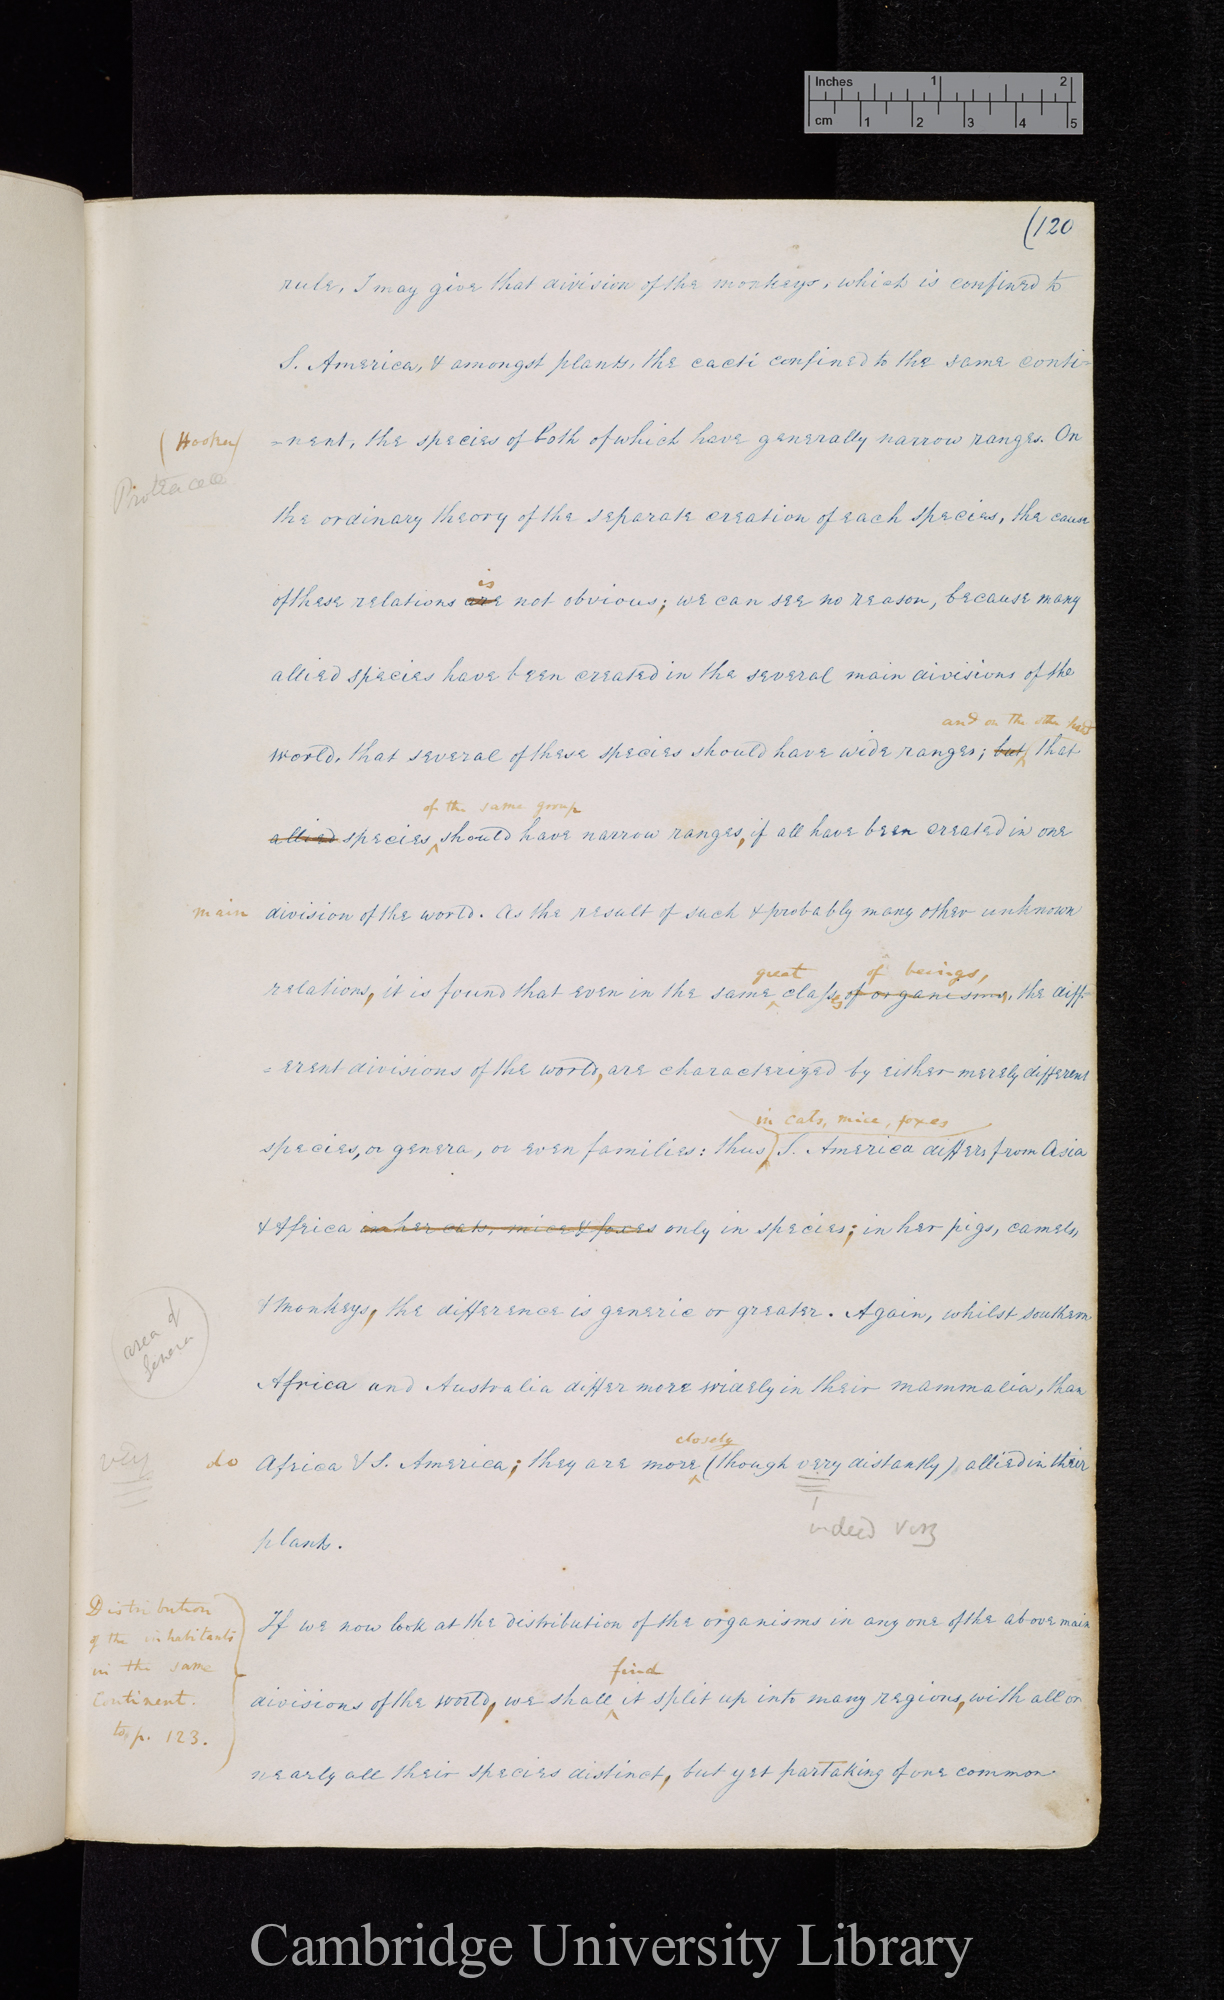 Inches 1 2
cm 1 2 3 4 5
(120
rule, I may give that division of the monkeys, which is confined to
S. America, & amongst plants, the cacti confined to the same conti-
(Hooker)
=nent, the species of both of which have generally narrow ranges. On
Proteaceæ
the ordinary theory of the separate creation of each species, the cause
is
of these relations are not obvious; we can see no reason, because many
allied species have been created in the several main divisions of the
and on the other hand
world, that several of these species should have wide ranges; but that
of the same group
allied species should have narrow ranges, if all have been created in one
main division of the world. As the result of such & probably many other unknown
great of beings,
relations, it is found that even in the same classes of organisms, the diff-
=erent divisions of the world, are characterized by either merely different
in cats, mice, foxes
species, or genera, or even families: thus S. America differs from Asia
& Africa in her cats, mice & foxes only in species; in her pigs, camels,
& monkeys, the difference is generic or greater. Again, whilst southern
area of
Genera
Africa and Australia differ more widely in their mammalia, than
closely
very
do Africa & S. America; they are more (though very distantly) allied in their
indeed very
plants.
Distribution
of the inhabitants
in the same
continent.
to p. 123.
If we now look at the distribution of the organisms in any one of the above main
find
divisions of the world, we shall it split up into many regions, with all or
nearly all their species distinct, but yet partaking of one common
Cambridge University Library